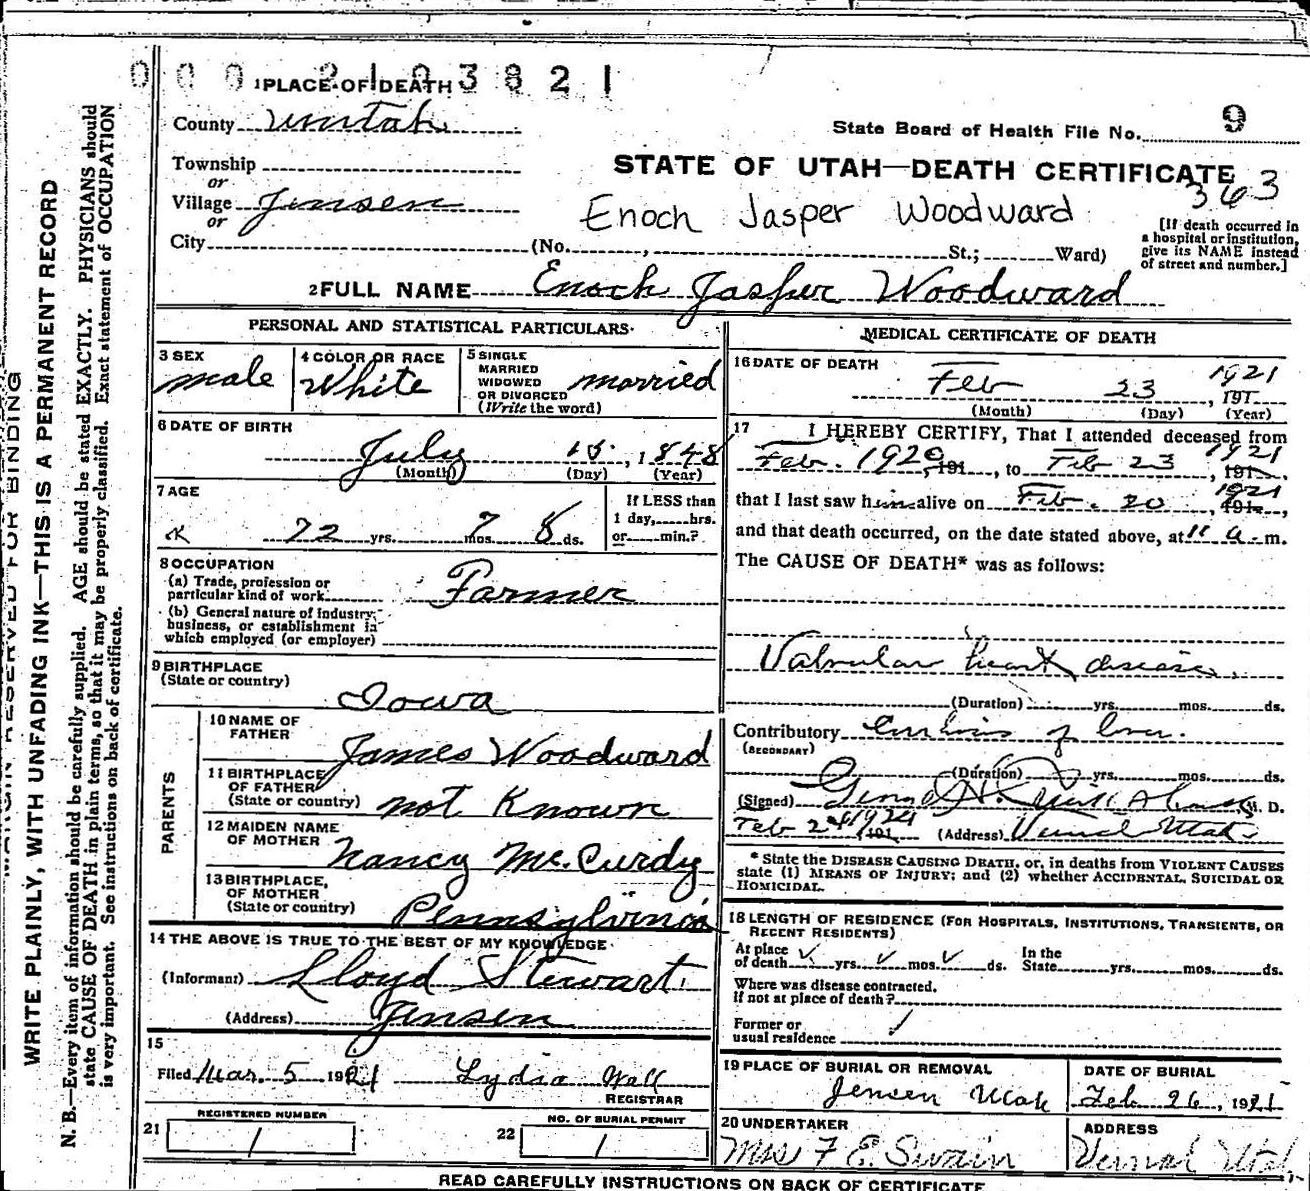 0002103821
1 PLACE OF DEATH
County Uintah
State Board of Health File No. 9
STATE OF UTAH—DEATH CERTIFICATE
363
Township
or
Village Jensen
or
City
Enoch Jasper Woodward
(No. , St.; Ward)
[If death occurred in
a hospital or institution,
give its NAME instead
of street and number.]
2 FULL NAME Enoch Jasper Woodward
PERSONAL AND STATISTICAL PARTICULARS
3 SEX
male
4 COLOR OR RACE
White
5 SINGLE
MARRIED
WIDOWED
OR DIVORCED
(Write the word)
married
6 DATE OF BIRTH
July 15, 1848
(Month) (Day) (Year)
7 AGE
72 yrs. 7 mos. 8 ds.
If LESS than
1 day, hrs.
or min.?
8 OCCUPATION
(a) Trade, profession or
particular kind of work Farmer
(b) General nature of industry,
business, or establishment in
which employed (or employer)
9 BIRTHPLACE
(State or country)
Iowa
PARENTS
10 NAME OF
FATHER
James Woodward
11 BIRTHPLACE
OF FATHER
(State or country) not Known
12 MAIDEN NAME
OF MOTHER
Nancy Mc.Curdy
13 BIRTHPLACE,
OF MOTHER
(State or country)
14 THE ABOVE IS TRUE TO THE BEST OF MY KNOWLEDGE
(Informant) Lloyd Stewart
(Address) Jensen
15
Filed Mar. 5 1921 Lydia Wall
REGISTRAR
REGISTERED NUMBER
21 1
NO. OF BURIAL PERMIT
22 1
MEDICAL CERTIFICATE OF DEATH
16 DATE OF DEATH
Feb 23 1921
, 191
(Month) (Day) (Year)
17 I HEREBY CERTIFY, That I attended deceased from
Feb. 1920, 191 , to Feb 23 1921, 191 ,
that I last saw him alive on Feb. 20 1921, 191 ,
and that death occurred, on the date stated above, at 11 a m.
The CAUSE OF DEATH* was as follows:
Valvular heart disease.
(Duration) yrs. mos. ds.
Contributory
(SECONDARY)
(Duration) yrs. mos. ds.
(Signed) M. D.
Feb 24 191 (Address) Vernal Utah
* State the DISEASE CAUSING DEATH, or, in deaths from VIOLENT CAUSES
state (1) MEANS OF INJURY; and (2) whether ACCIDENTAL, SUICIDAL OR
HOMICIDAL.
18 LENGTH OF RESIDENCE (FOR HOSPITALS, INSTITUTIONS, TRANSIENTS, OR
RECENT RESIDENTS)
At place
of death yrs. mos. ds.
In the
State yrs. mos. ds.
Where was disease contracted,
if not at place of death?
Former or
usual residence
19 PLACE OF BURIAL OR REMOVAL
Jensen Utah
DATE OF BURIAL
Feb 26, 1921
20 UNDERTAKER
Mrs F E. Swain
ADDRESS
Vernal Utah
READ CAREFULLY INSTRUCTIONS ON BACK OF CERTIFICATE
MARGIN RESERVED FOR BINDING
WRITE PLAINLY, WITH UNFADING INK—THIS IS A PERMANENT RECORD
N. B.—Every item of information should be carefully supplied. AGE should be stated EXACTLY. PHYSICIANS should
state CAUSE OF DEATH in plain terms, so that it may be properly classified. Exact statement of OCCUPATION
is very important. See instructions on back of certificate.